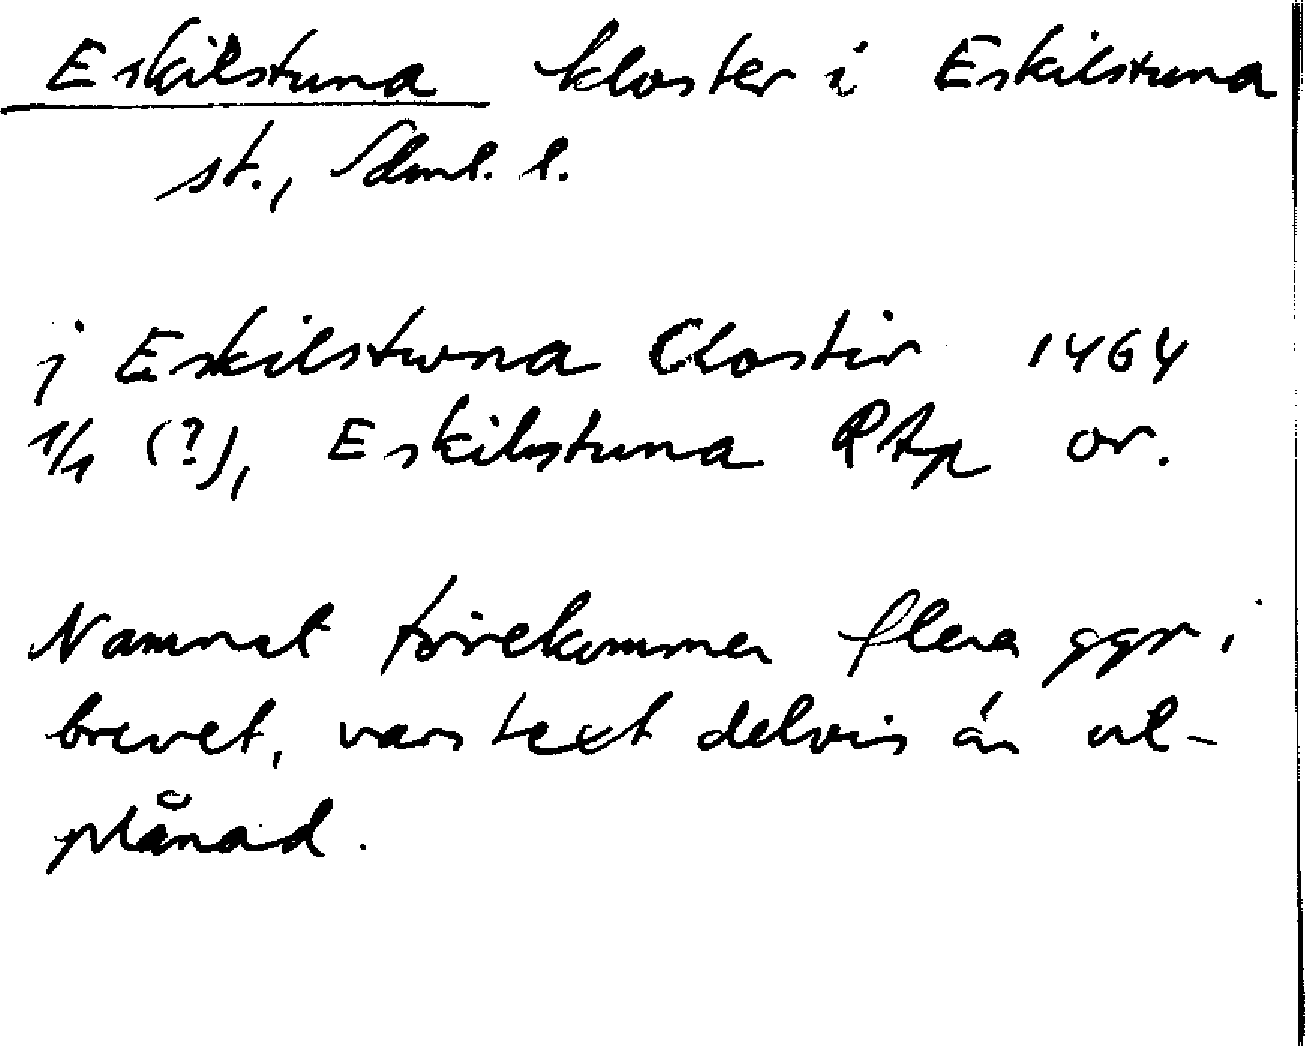 Eskilstuna kloster i Eskilstuna
st., Sdml. l.
j Eskilstwna Closter 1464
1/1 (?), Eskilstuna RAp or.
Namnet förekommer flera ggr i
brevet, vars text delvis är ut-
plånad.